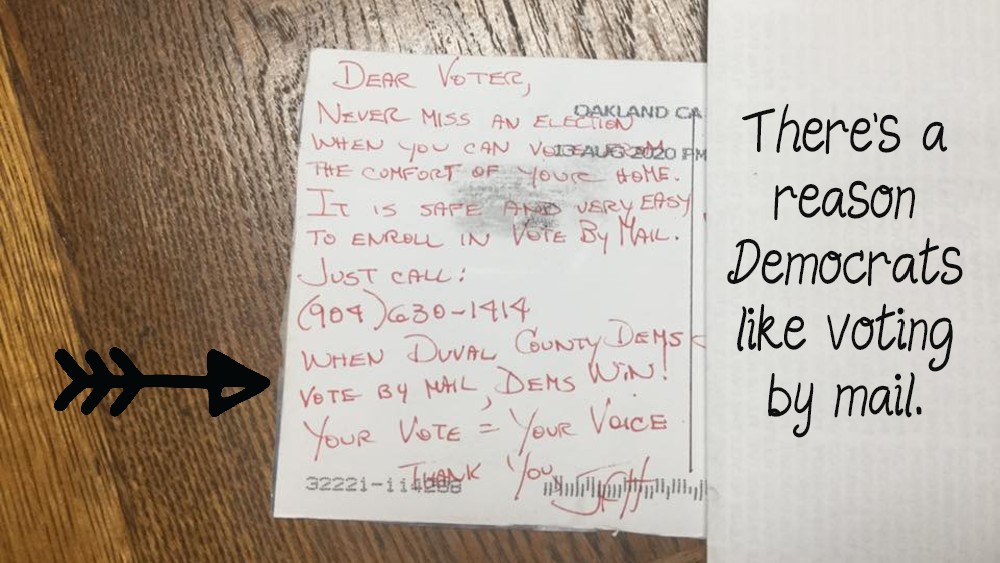 DEAR VOTER,
NEVER MISS AN ELECTION
OAKLAND CA
WHEN YOU CAN VOTE FROM
13 AUG 2020 PM
THE COMFORT OF YOUR HOME.
IT IS SAFE AND VERY EASY
TO ENROLL IN VOTE BY MAIL.
JUST CALL:
(904)630-1414
WHEN DUVAL COUNTY DEMS
VOTE BY MAIL, DEMS WIN!
YOUR VOTE = YOUR VOICE
THANK YOU
There's a
reason
Democrats
like voting
by mail.